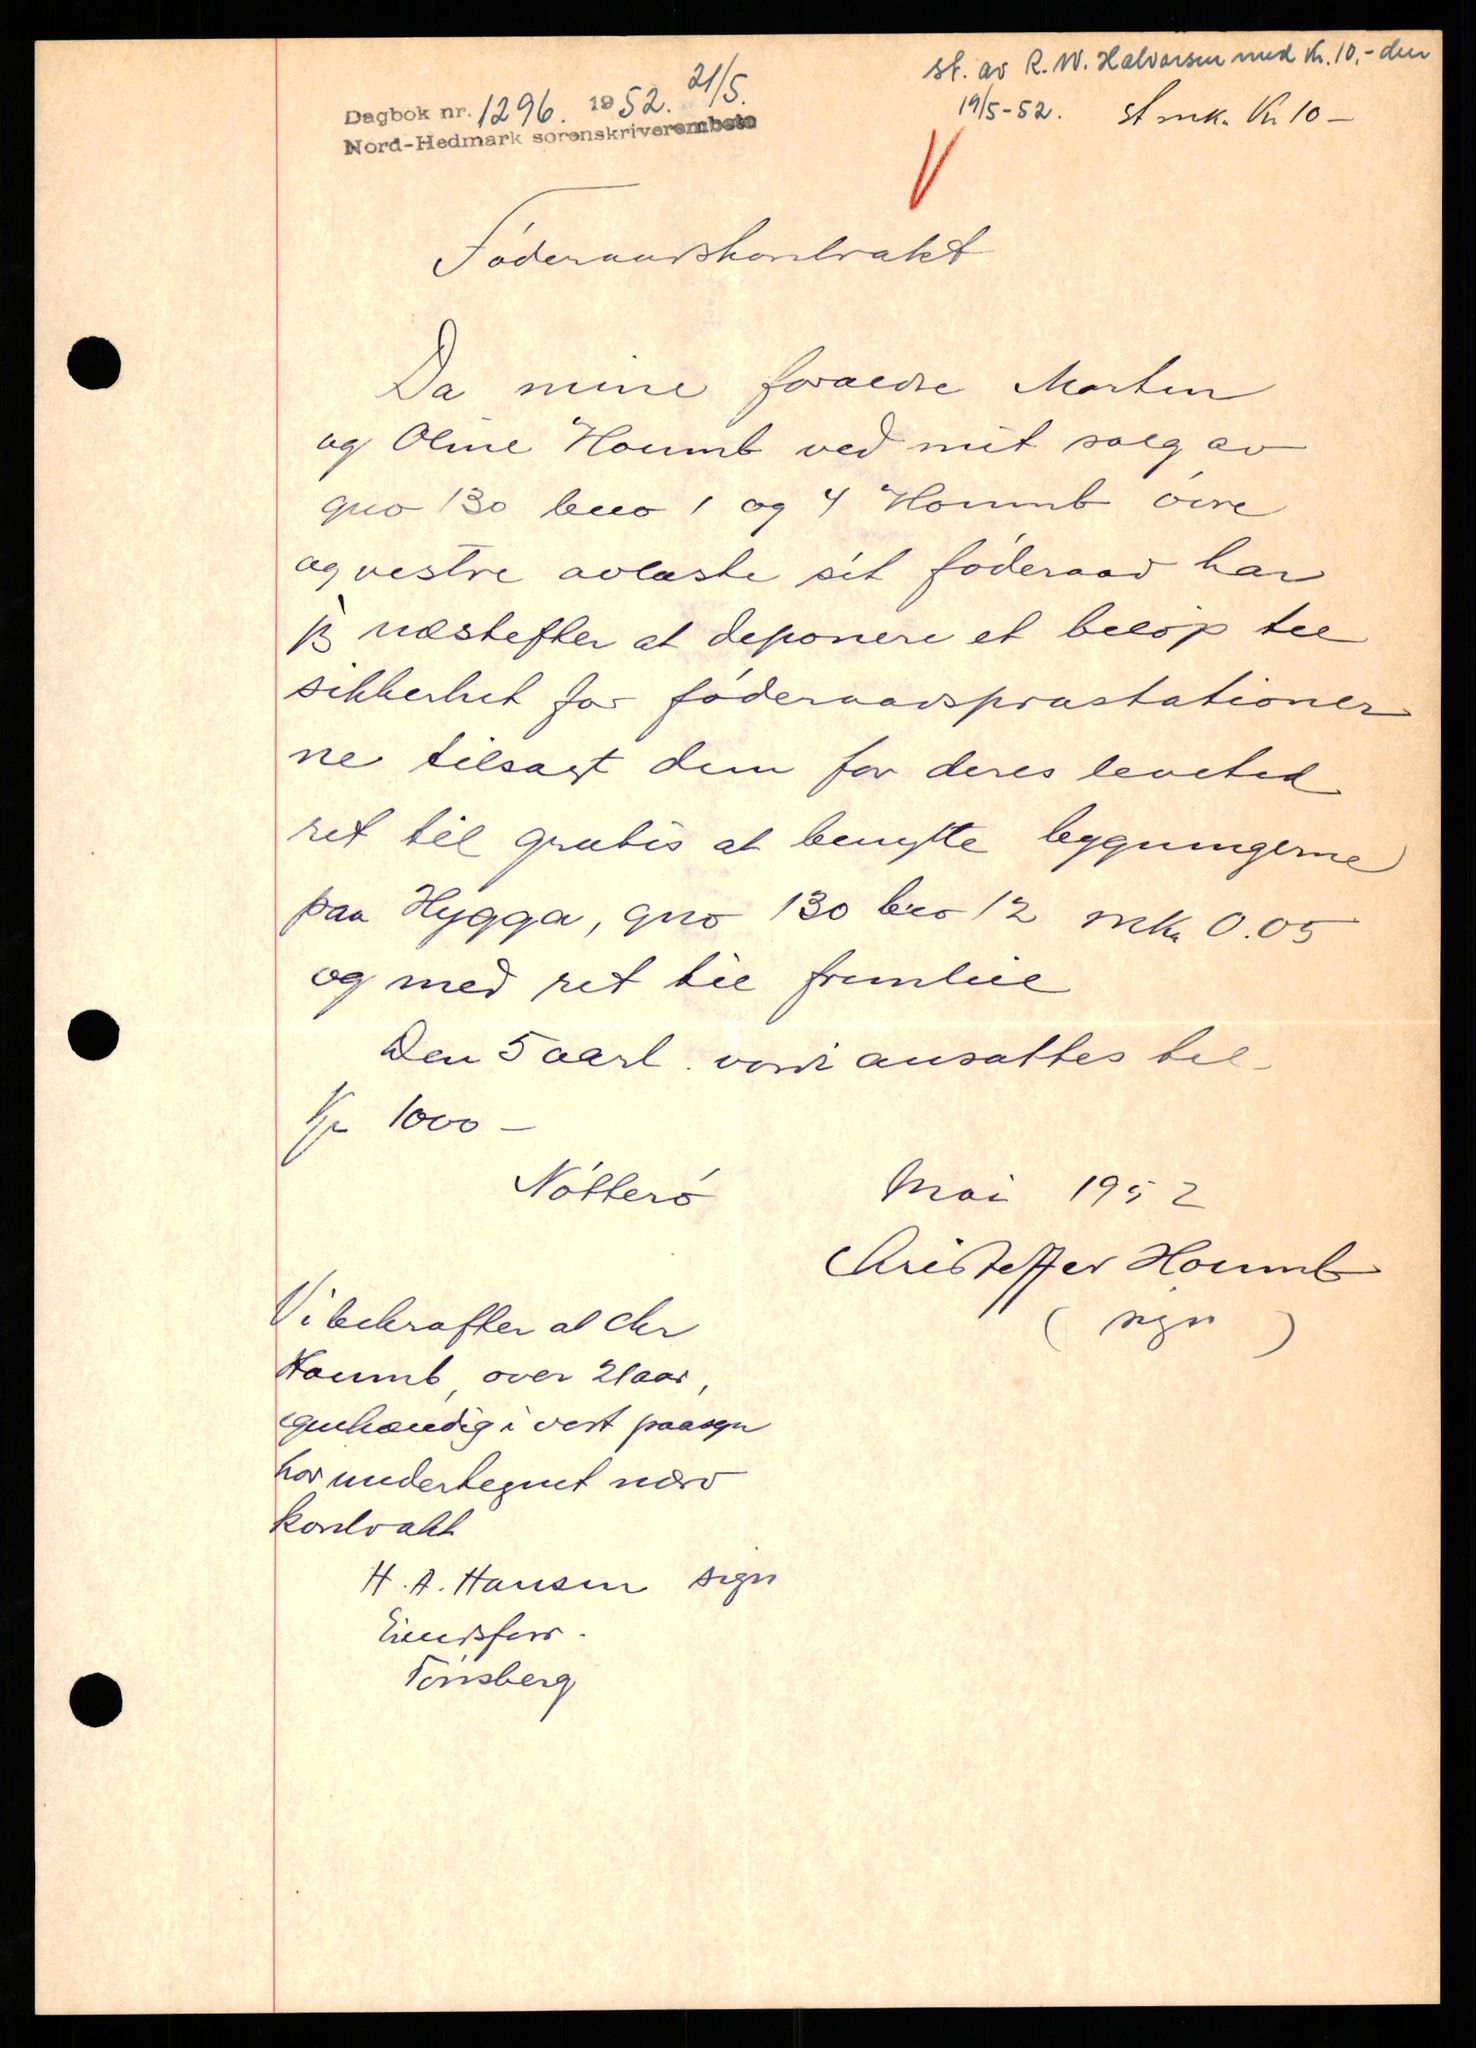 st. av R. W. Halvorsen med Kr. 10,- den
19/5-52. st mk. Kr 10 –
Dagbok nr. 1296. 1952. 21/5.
Nord-Hedmark sorenskriverembete
Föderaadskontrakt
Da mine foraeldre Morten
og Oline Houmb ved mit salg av
gno 130 bno 1 og 4 Houmb övre
og vestre avlöste sit föderaad har
jeg næstefter at deponere et belöp til
sikkerhet for föderaadspræstationer
ne tilsagt dem for deres levetid
ret til gratis at benytte bygningerne
paa Hygga, gno 130 bno 12 mk. 0.05
og med ret til fremleie
Den 5 aarl. verdi ansættes til
Kr 1000 –
Nötterö Mai 1952
Christoffer Houmb
( sign )
Vi bekræfter at Chr
Houmb, over 21 aar,
egenhændig i vort paasyn
har undertegnet nærv
kontrakt
H. A. Hansen sign
Eiendsforr.
Tönsberg